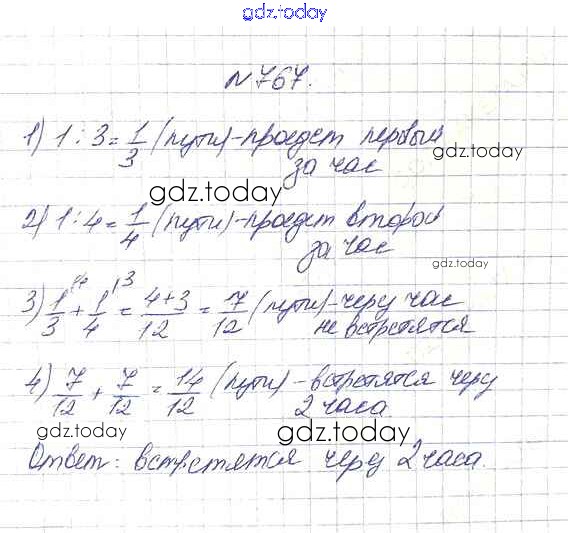 gdz.today
№ 767.
1) 1 : 3 = 1/3 (пути) - проедет первый
за час
gdz.today
gdz.today
2) 1 : 4 = 1/4 (пути) - проедет второй
за час
gdz.today
3) 1/3 \4 + 1/4 \3 = 4+3/12 = 7/12 (пути) - через час
не встретятся
4) 7/12 + 7/12 = 14/12 (пути) - встретятся через
2 часа.
gdz.today
gdz.today
Ответ: встретятся через 2 часа.